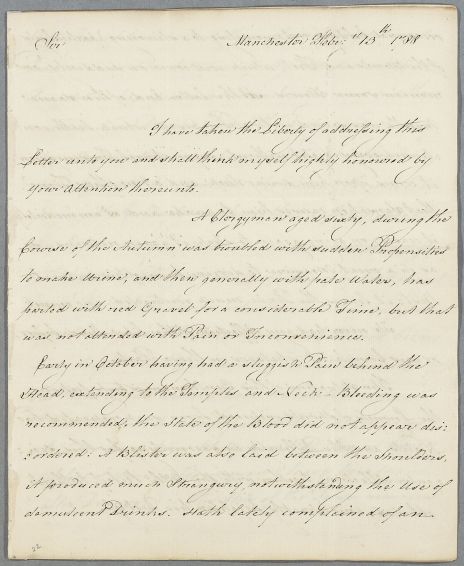 Sir Manchester Febry 13th 1788
I have taken the Liberty of addressing this
Letter unto you and shall think myself highly honoured by
your attention thereunto.
A Clergyman aged sixty, during the
Course of the Autumn was troubled with sudden Propensities
to make Urine, and then generally with pale Water, has
parted with red Gravel for a considerable Time, but that
was not attended with Pain or Inconvenience.
Early in October having had a sluggish Pain behind the
Head, extending to the Temples and Neck - Bleeding was
recommended, the State of the Blood did not appear dis:
:ordered: A Blister was also laid between the Shoulders,
it produced much Strangury notwithstanding the Use of
demulcent Drinks. Hath lately complained of an
22